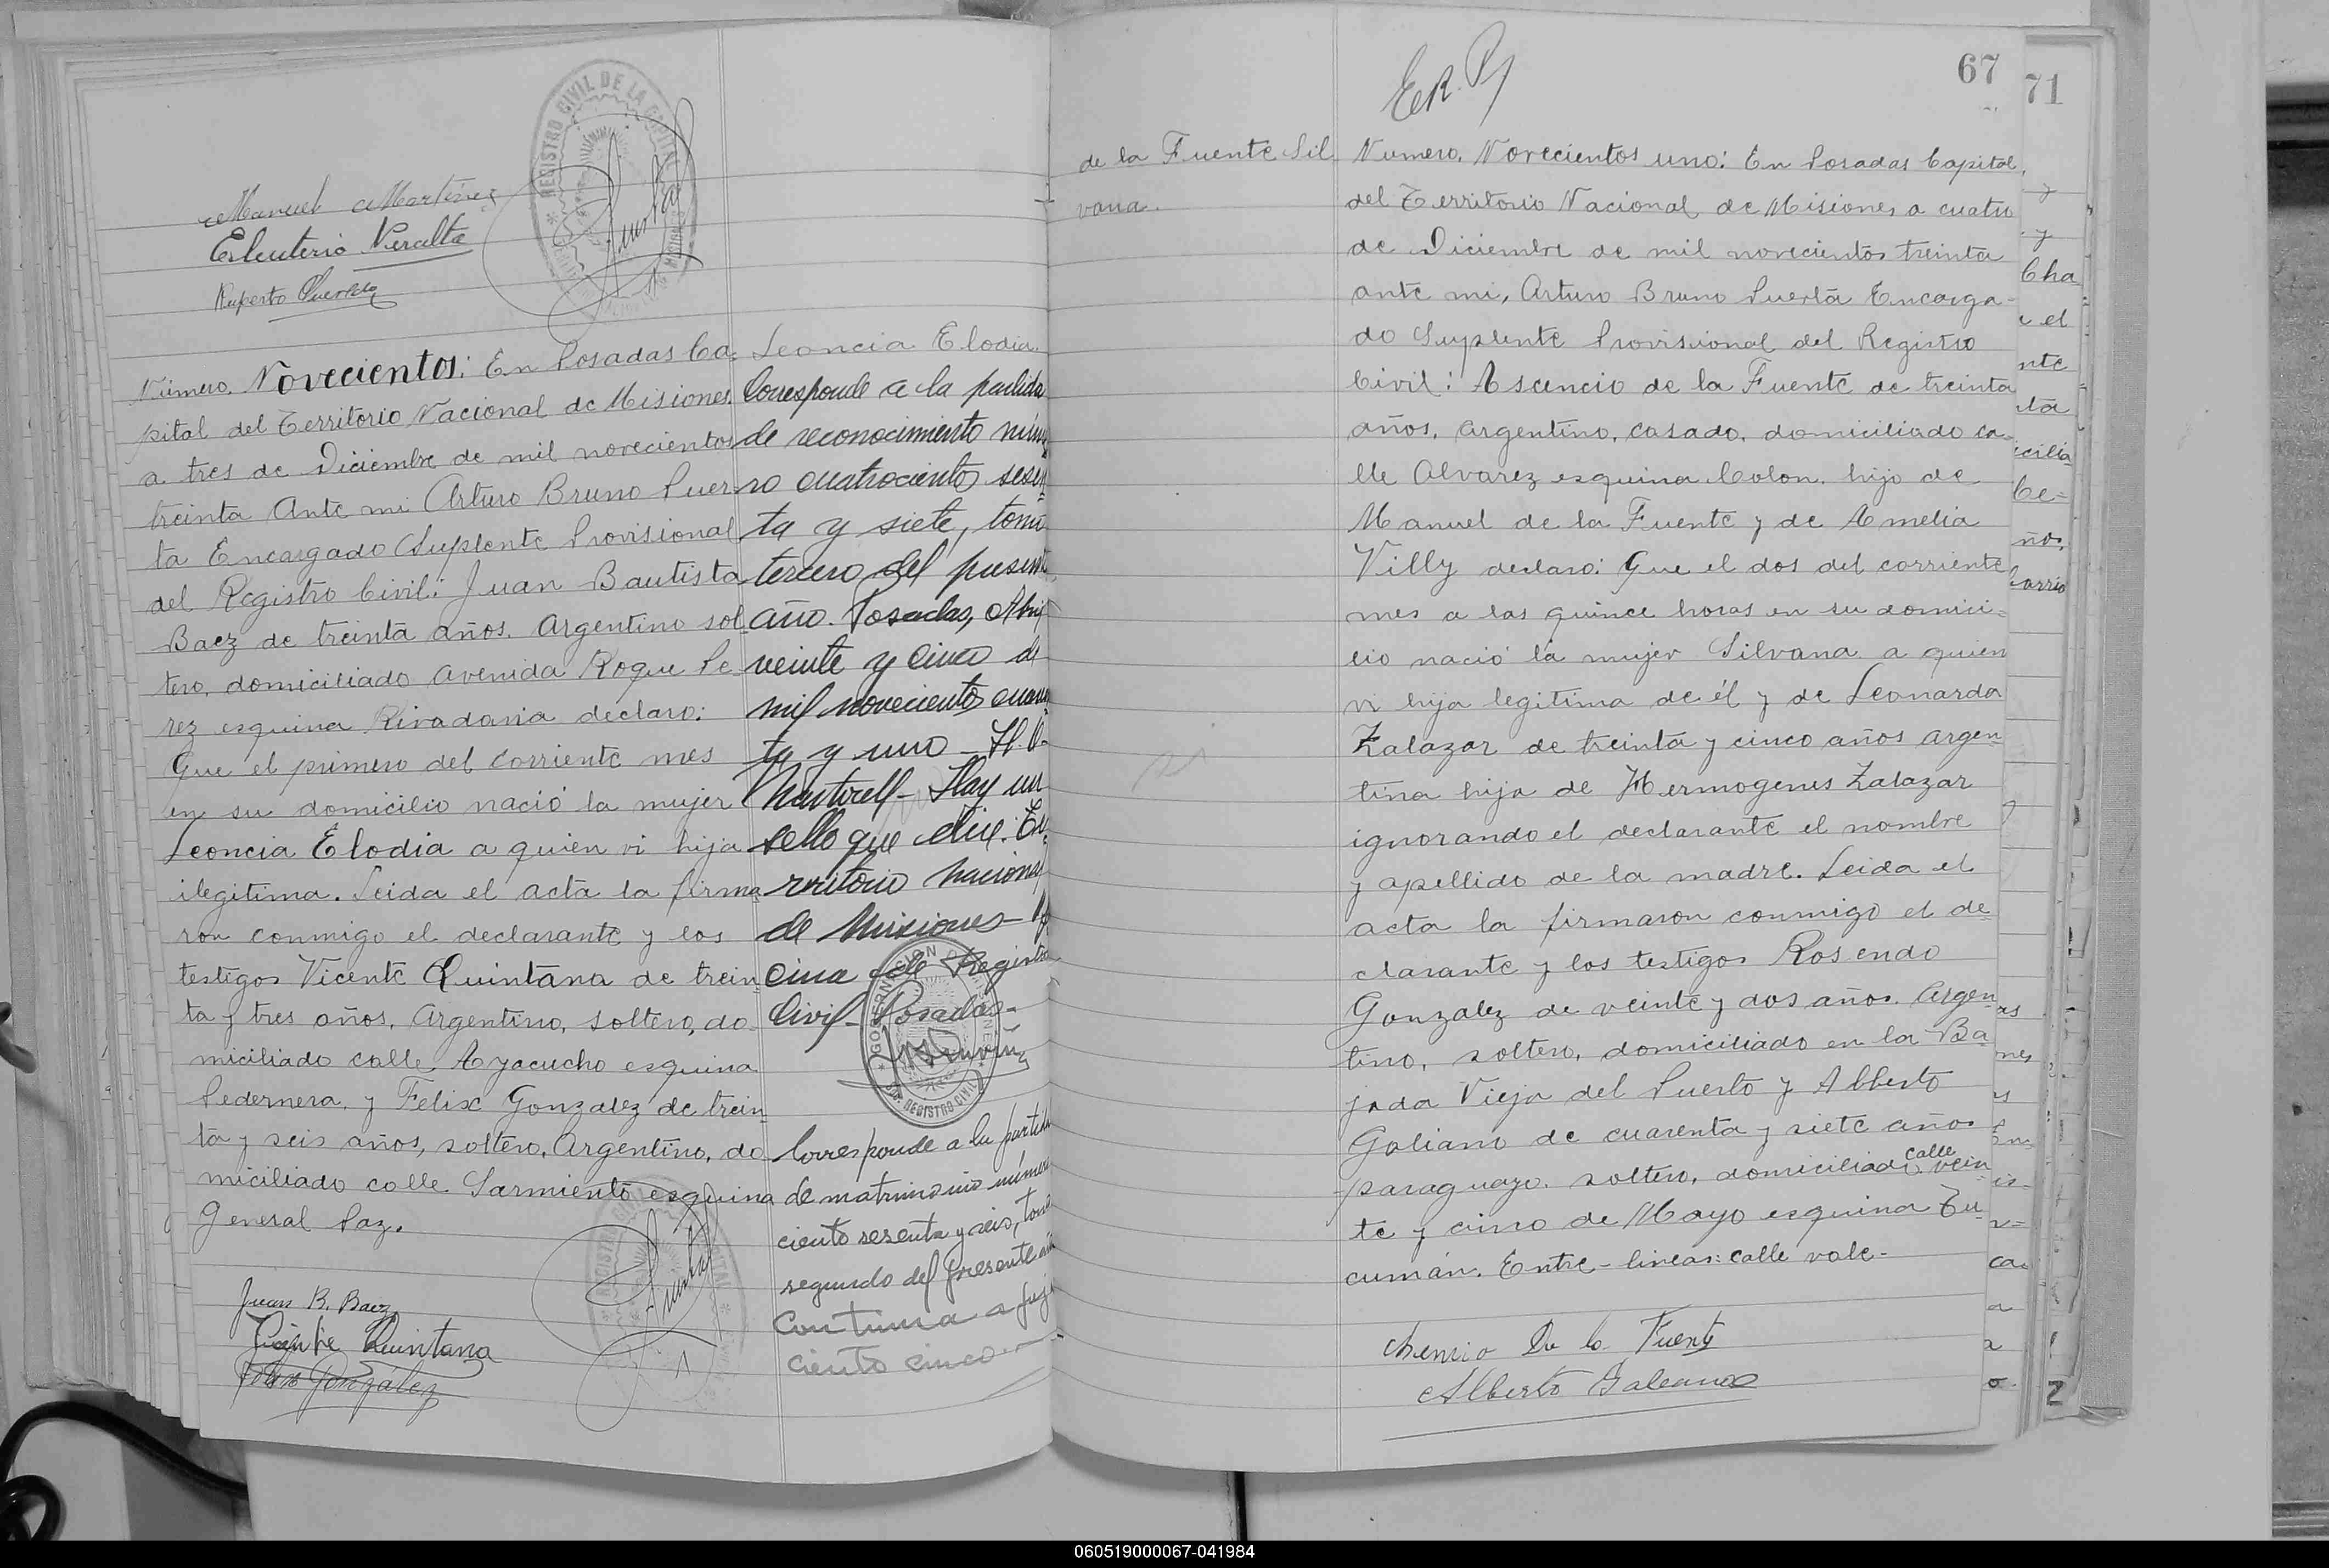 REGISTRO CIVIL DE LA CAPITAL
Manuel Martinez
Eleuterio Peralta
Ruperto
Número. Novecientos: En Posadas Ca-
pital del Territorio Nacional de Misiones
a tres de Diciembre de mil novecientos
treinta Ante mi Arturo Bruno Puer-
ta Encargado Suplente Provisional
del Registro Civil: Juan Bautista
Baez de treinta años. Argentino sol-
tero, domiciliado Avenida Roque Pe-
rez esquina Rivadavia declaro:
Que el primero del corriente mes
en su domicilio nació la mujer
Leoncia Elodia a quien vi hija
ilegitima. Leida el acta la firma-
ron conmigo el declarante y los
testigos Vicente Quintana de trein-
ta y tres años, Argentino, soltero, do-
miciliado calle Ayacucho esquina
Pedernera y Felix Gonzalez de trein-
ta y seis años, soltero, Argentino, do-
miciliado calle Sarmiento esquina
General Paz.
Juan B. Baez
Vicente Quintana
Felix González
Leoncia Elodia.
Corresponde a la partida
de reconocimiento núme-
ro cuatrociento sesen-
ta y siete, tomo
tercero del presente
año. Posadas, Abril
veinte y cinco de
mil novecientos cuaren-
ta y uno -
Hay un
sello que dice: Te-
rritorio Nacional
de Misiones - Ofi
cina de Registro
Civil - Posadas -
Corresponde a la partida
de matrimonio número
ciento sesenta y seis, tomo
segundo del presente año
Continua a foja
ciento cinco
67
71
de la Fuente Sil
vana.
Numero. Novecientos uno: En Posadas Capital
del Territorio Nacional de Misiones a cuatro
de Diciembre de mil novecientos treinta
ante mi, Arturo Bruno Puerta Encarga-
do Suplente Provisional del Registro
Civil: Ascencio de la Fuente de treinta
años, argentino, casado, domiciliado ca-
lle Alvarez esquina Colon. hijo de
Manuel de la Fuente y de Amelia
Villy declaro: Que el dos del corriente
mes a las quince horas en su domici-
lio nació la mujer Silvana a quien
vi hija legitima de él y de Leonarda
Zalazar de treinta y cinco años argen-
tina hija de Hermogenes Zalazar
ignorando el declarante el nombre
y apellido de la madre. Leida el
acta la firmaron conmigo el de-
clarante y los testigos Rosendo
Gonzalez de veinte y dos años. Argen-
tino, soltero, domiciliado en la Ba-
jada Vieja del Puerto y Alberto
Galiano de cuarenta y siete años
paraguayo. soltero, domiciliado calle vein-
te y cinco de Mayo esquina Tu-
cumán. Entre-lineas: calle vale-
Asencio De la Fuente
Alberto Galeano
060519000067-041984